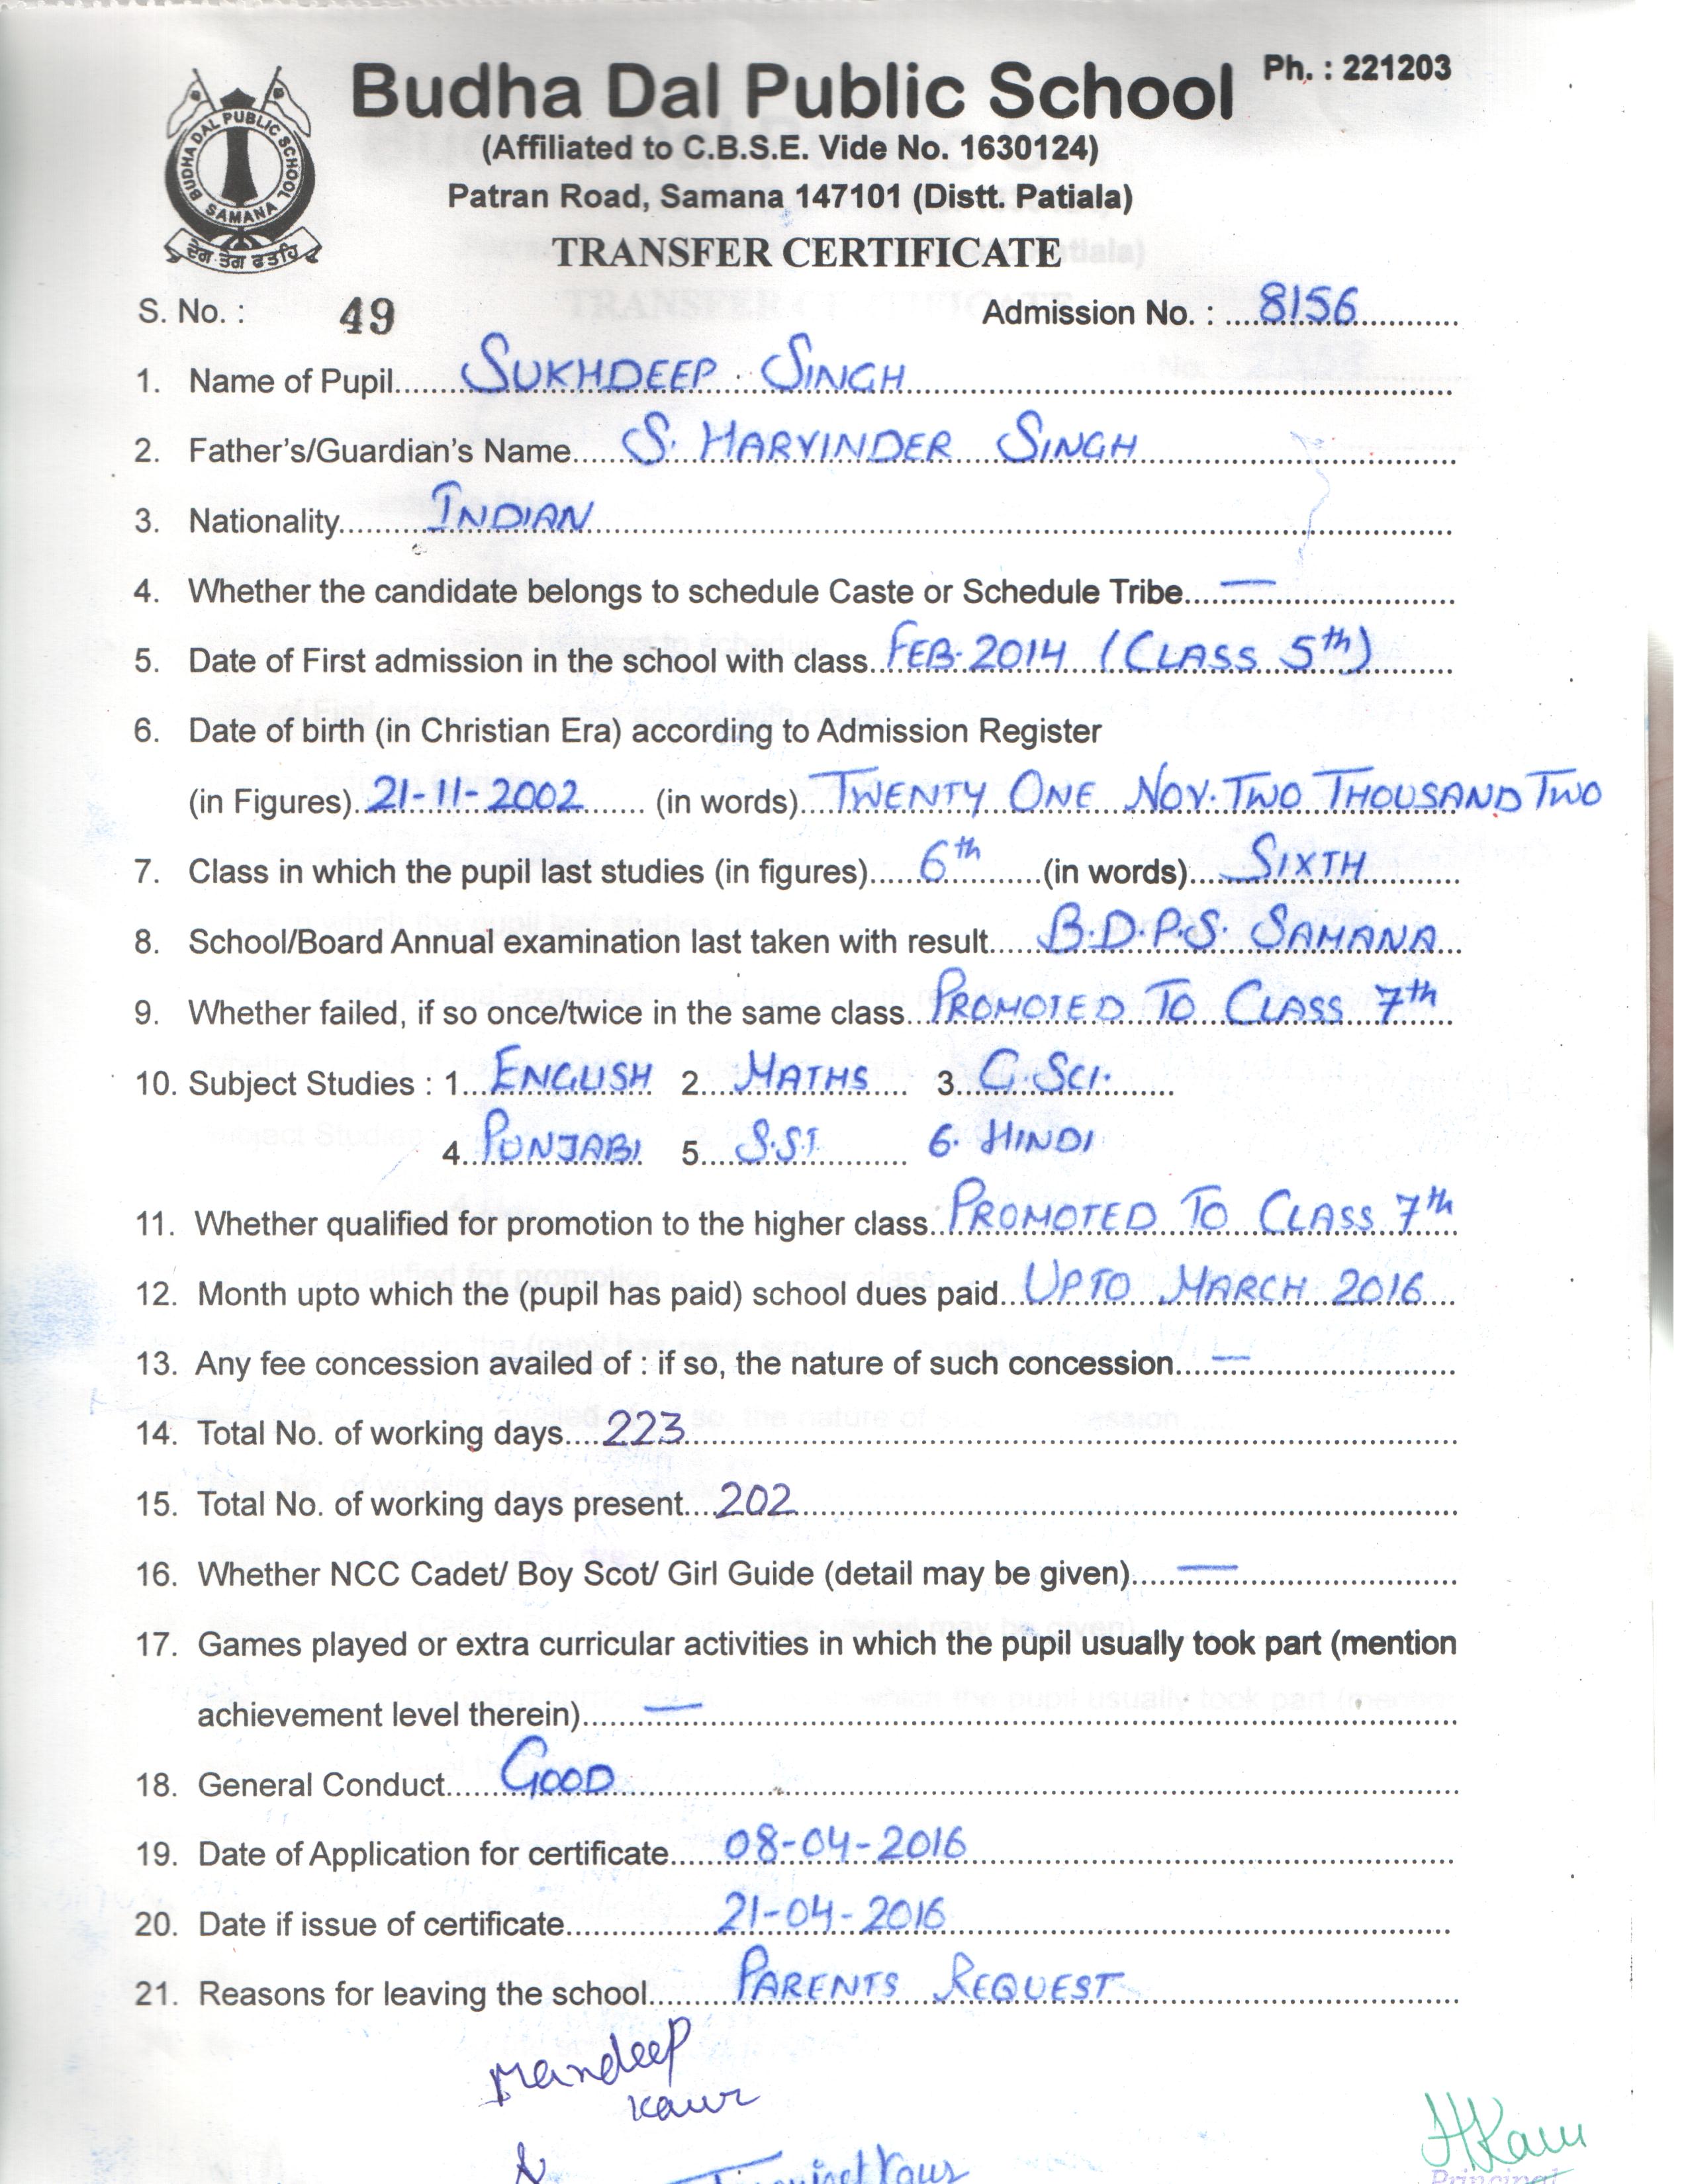 Budha Dal Public School
Ph. : 221203
(Affiliated to C.B.S.E. Vide No. 1630124)
Patran Road, Samana 147101 (Distt. Patiala)
BUDHA DAL PUBLIC SCHOOL
SAMANA
ਦੇਗ ਤੇਗ ਫਤਹਿ
TRANSFER CERTIFICATE
S. No. : 49 Admission No. : 8156
1. Name of Pupil SUKHDEEP SINGH
2. Father's/Guardian's Name S. HARVINDER SINGH
3. Nationality INDIAN
4. Whether the candidate belongs to schedule Caste or Schedule Tribe —
5. Date of First admission in the school with class FEB. 2014 (CLASS 5th)
6. Date of birth (in Christian Era) according to Admission Register
(in Figures) 21-11-2002 (in words) TWENTY ONE NOV. TWO THOUSAND TWO
7. Class in which the pupil last studies (in figures) 6th (in words) SIXTH
8. School/Board Annual examination last taken with result B.D.P.S. SAMANA
9. Whether failed, if so once/twice in the same class PROMOTED TO CLASS 7th
10. Subject Studies : 1. ENGLISH 2. MATHS 3. G.SCI.
4. PUNJABI 5. S.ST. 6. HINDI
11. Whether qualified for promotion to the higher class PROMOTED TO CLASS 7th
12. Month upto which the (pupil has paid) school dues paid UPTO MARCH 2016
13. Any fee concession availed of : if so, the nature of such concession —
14. Total No. of working days 223
15. Total No. of working days present 202
16. Whether NCC Cadet/ Boy Scot/ Girl Guide (detail may be given) —
17. Games played or extra curricular activities in which the pupil usually took part (mention
achievement level therein) —
18. General Conduct GOOD
19. Date of Application for certificate 08-04-2016
20. Date if issue of certificate 21-04-2016
21. Reasons for leaving the school PARENTS REQUEST
Mandeep
Kaur
Kaur
Principal